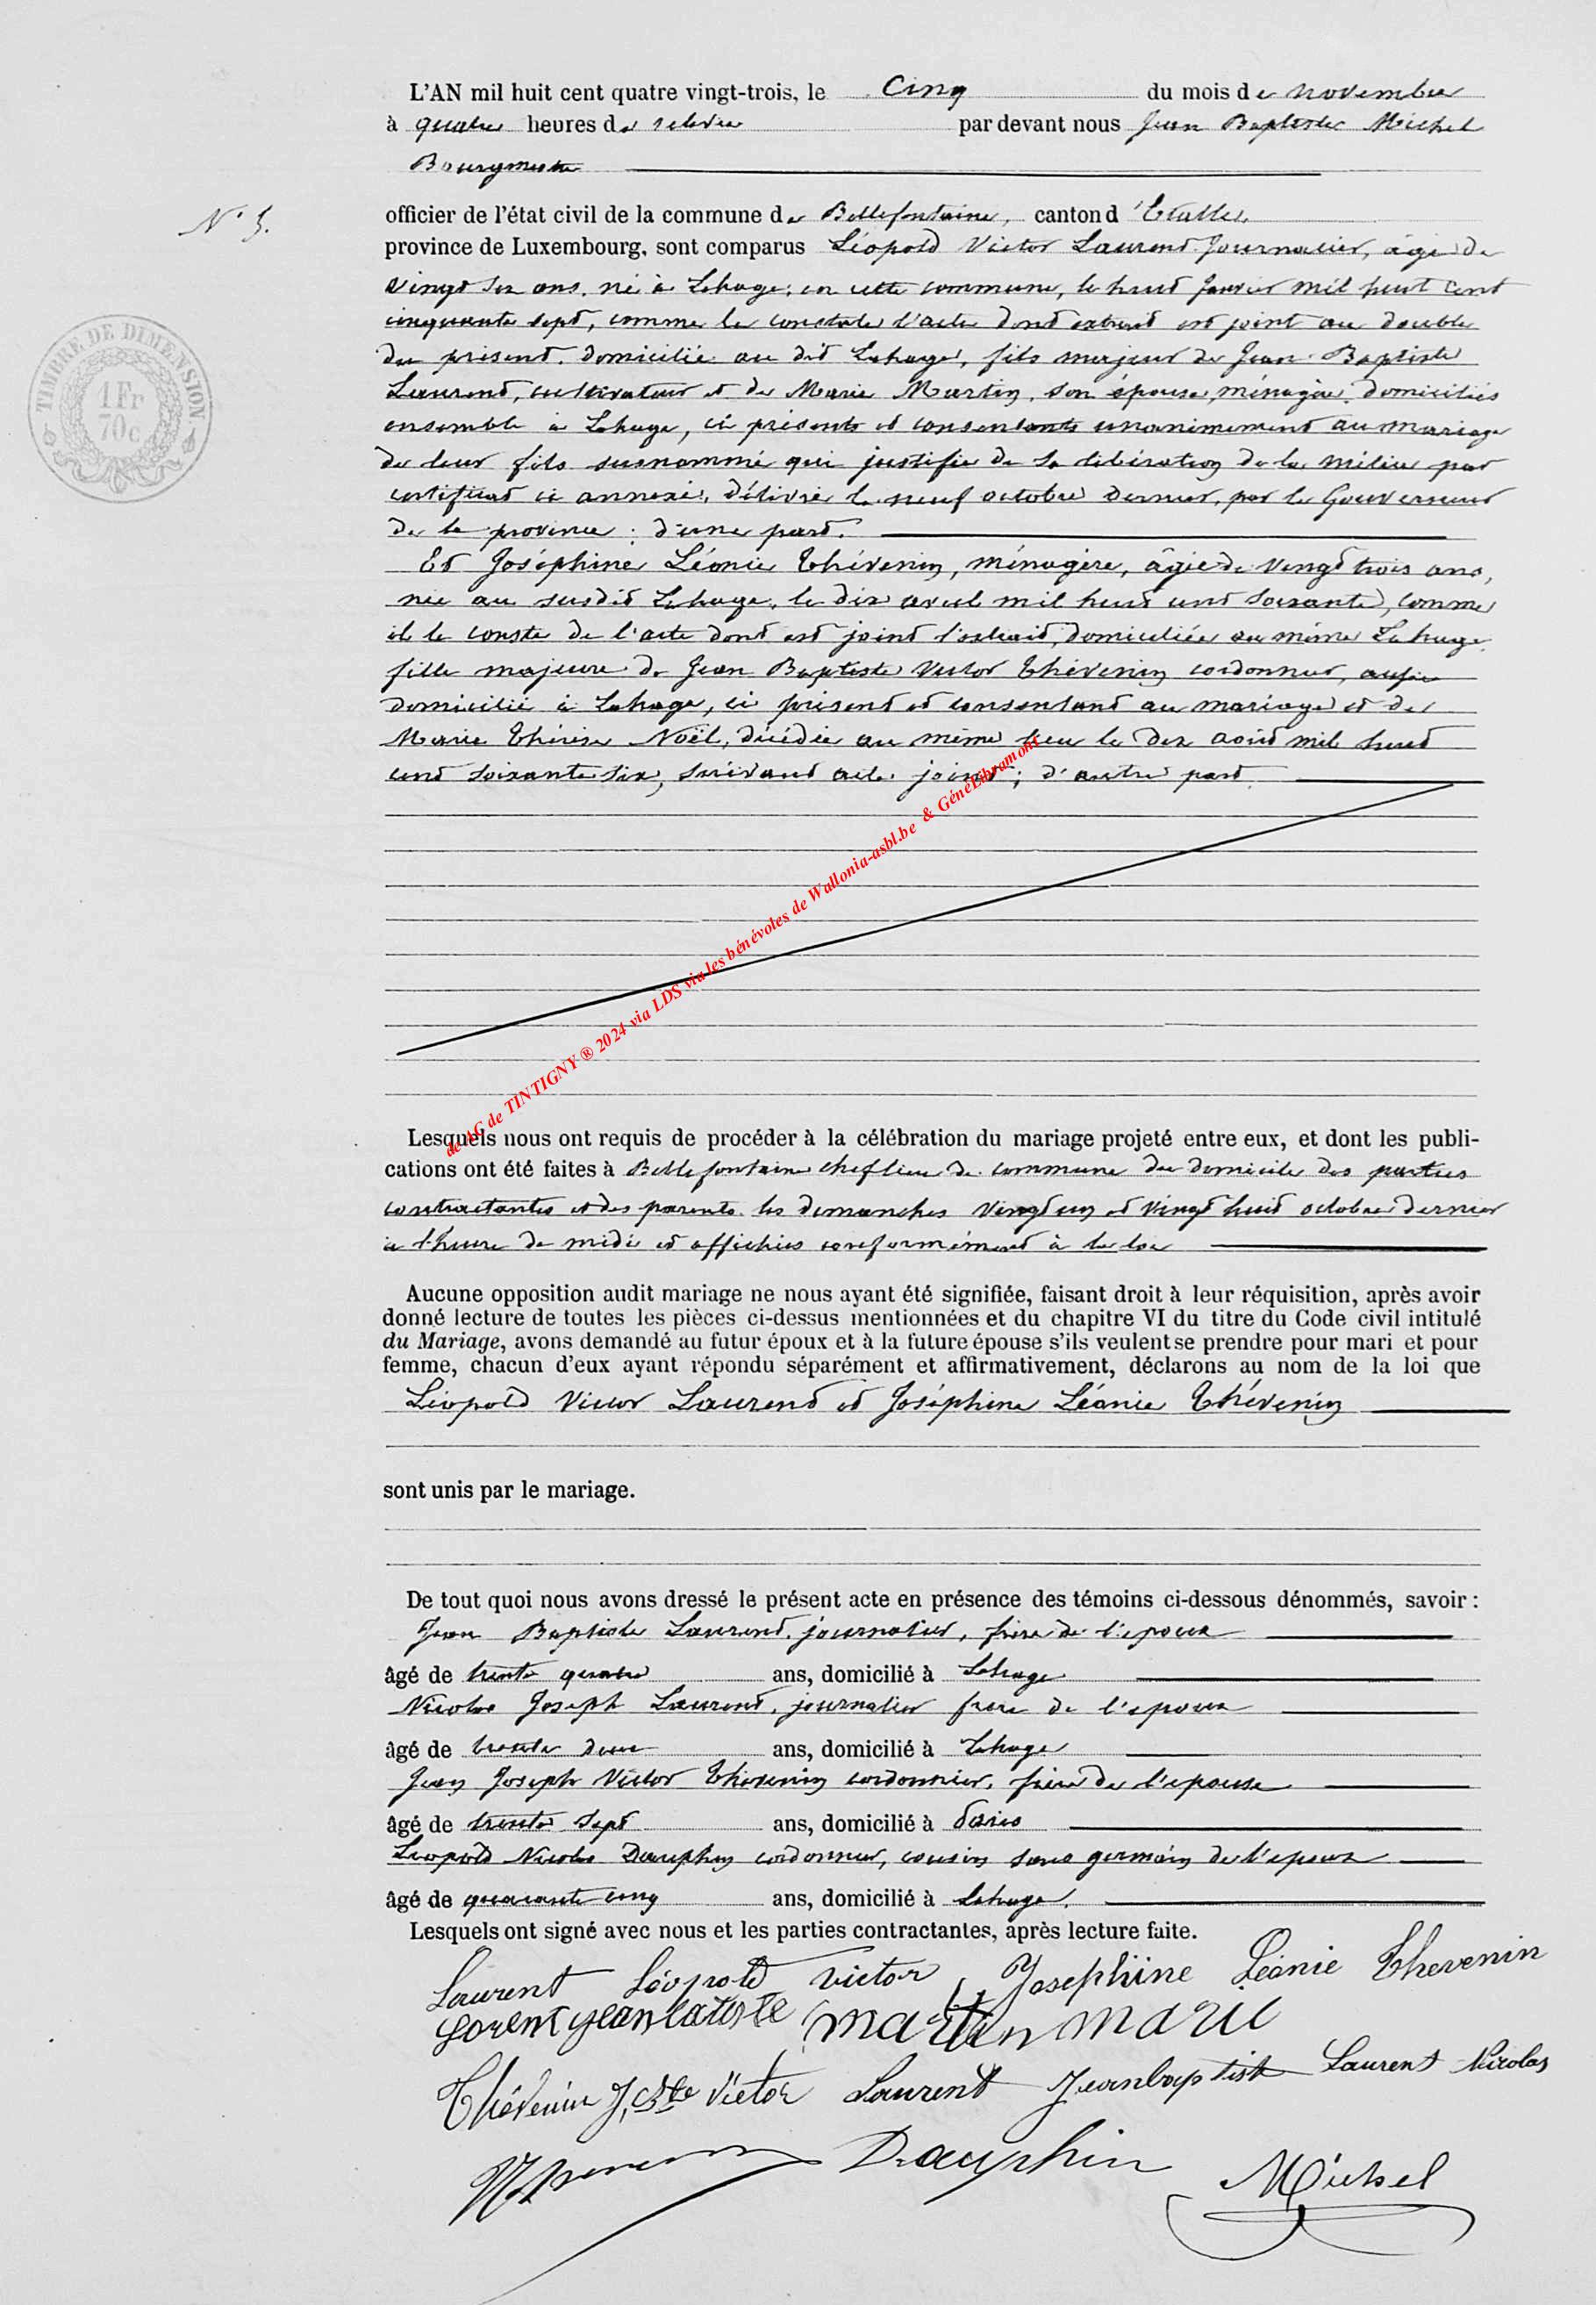 L'AN mil huit cent quatre vingt-trois, le Cinq du mois de novembre
à quatre heures de relevée par devant nous Jean Baptiste Michel
Bourgmestre
N° 5.
officier de l'état civil de la commune de Bellefontaine, canton d'Etalle,
province de Luxembourg, sont comparus Léopold Victor Laurent Journalier, âgé de
vingt six ans, né à Lahage, en cette commune, le huit Janvier mil huit cent
cinquante sept, comme le constate l'acte dont extrait est joint au double
du présent, domicilié au dit Lahage, fils majeur de Jean Baptiste
Laurent, cultivateur et de Marie Martin, son épouse, ménagère, domiciliés
ensemble à Lahage, ci présents et consentants unanimement au mariage
de leur fils susnommé qui justifie de sa libération de la milice par
certificat ci annexé, délivré le neuf octobre dernier, par le Gouverneur
de la province ; d'une part.
Et Joséphine Léonie Thévenin, ménagère, âgée de vingt trois ans,
née au susdit Lahage, le dix avril mil huit cent soixante, comme
il le conste de l'acte dont est joint l'extrait, domiciliée au même Lahage
fille majeure de Jean Baptiste Victor Thévenin cordonnier, aussi
domicilié à Lahage, ci présent et consentant au mariage et de
Marie Thérèse Noël, décédée au même lieu le dix août mil huit
cent soixante six, suivant acte joint ; d'autre part.
TIMBRE DE DIMENSION.
1 Fr
70c
de AC de TINTIGNY ® 2024 via LDS via les bénévoles de Wallonia-asbl.be & GénéLibramont
Lesquels nous ont requis de procéder à la célébration du mariage projeté entre eux, et dont les publi-
cations ont été faites à Bellefontaine chef lieu de commune du domicile des parties
contractantes et des parents les dimanches vingt un et vingt huit octobre dernier
à l'heure de midi et affichées conformément à la loi
Aucune opposition audit mariage ne nous ayant été signifiée, faisant droit à leur réquisition, après avoir
donné lecture de toutes les pièces ci-dessus mentionnées et du chapitre VI du titre du Code civil intitulé
du Mariage, avons demandé au futur époux et à la future épouse s'ils veulent se prendre pour mari et pour
femme, chacun d'eux ayant répondu séparément et affirmativement, déclarons au nom de la loi que
Léopold Victor Laurent et Joséphine Léonie Thévenin
sont unis par le mariage.
De tout quoi nous avons dressé le présent acte en présence des témoins ci-dessous dénommés, savoir :
Jean Baptiste Laurent, journalier, frère de l'époux
âgé de trente quatre ans, domicilié à Lahage
Nicolas Joseph Laurent, journalier frère de l'époux
âgé de trente deux ans, domicilié à Lahage
Jean Joseph Victor Thévenin cordonnier, frère de l'épouse
âgé de trente sept ans, domicilié à
Léopold Nicolas Dauphin cordonnier, cousin sous germain de l'époux
âgé de quarante cinq ans, domicilié à Lahage.
Lesquels ont signé avec nous et les parties contractantes, après lecture faite.
Laurent Léopold Victor Josephine Léonie Thevenin
Lorent jean batiste martin marie
Thévenin J. Bte Victor Laurent Jeanbaptiste Laurent Nicolas
Dauphin Michel